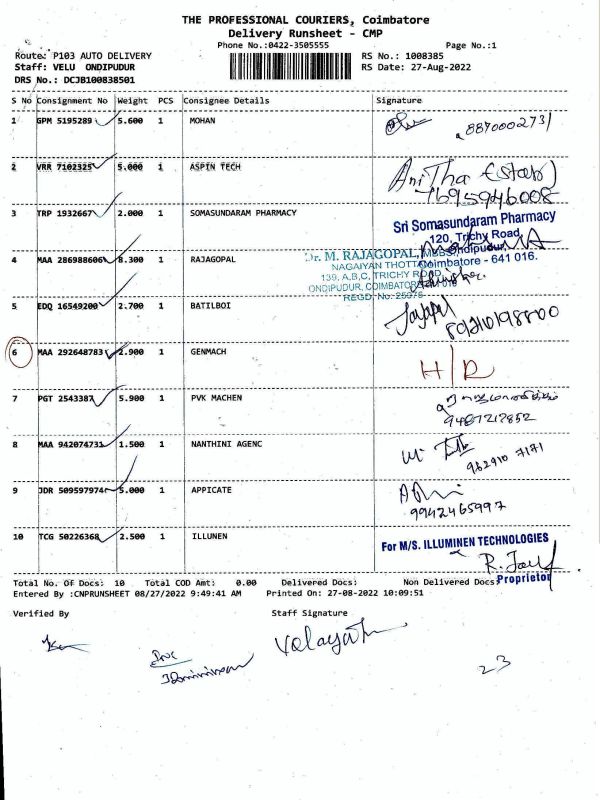 THE PROFESSIONAL COURIERS, Coimbatore
Delivery Runsheet - CMP
Phone No.:0422-3505555 Page No.:1
Route: P103 AUTO DELIVERY RS No.: 1008385
Staff: VELU ONDIPUDUR RS Date: 27-Aug-2022
DRS No.: DCJB100838501
S No Consignment No Weight PCS Consignee Details Signature
1 GPM 5195289 5.600 1 MOHAN
2 VRR 7102325 5.000 1 ASPIN TECH AniTha
7695946008
3 TRP 1932667 2.000 1 SOMASUNDARAM PHARMACY
Sri Somasundaram Pharmacy
120, Trichy Road
Ondipudur,
Coimbatore - 641 016.
4 MAA 286988606 8.300 1 RAJAGOPAL
Dr. M. RAJAGOPAL, MBBS,
NAGAIYAN THOTTAM
139, A,B,C, TRICHY ROAD
ONDIPUDUR, COIMBATORE
REGD. No: 25975
5 EDQ 16549200 2.700 1 BATILBOI
6 MAA 292648783 2.900 1 GENMACH H/D
7 PGT 2543387 5.900 1 PVK MACHEN
9487217852
8 MAA 942074731 1.500 1 NANTHINI AGENC
962910 7171
9 JDR 509597974 5.000 1 APPICATE
9942465997
10 TCG 50226368 2.500 1 ILLUNEN
For M/S. ILLUMINEN TECHNOLOGIES
Proprietor
Total No. Of Docs: 10 Total COD Amt: 0.00 Delivered Docs: Non Delivered Docs:
Entered By :CNPRUNSHEET 08/27/2022 9:49:41 AM Printed On: 27-08-2022 10:09:51
Verified By Staff Signature
23